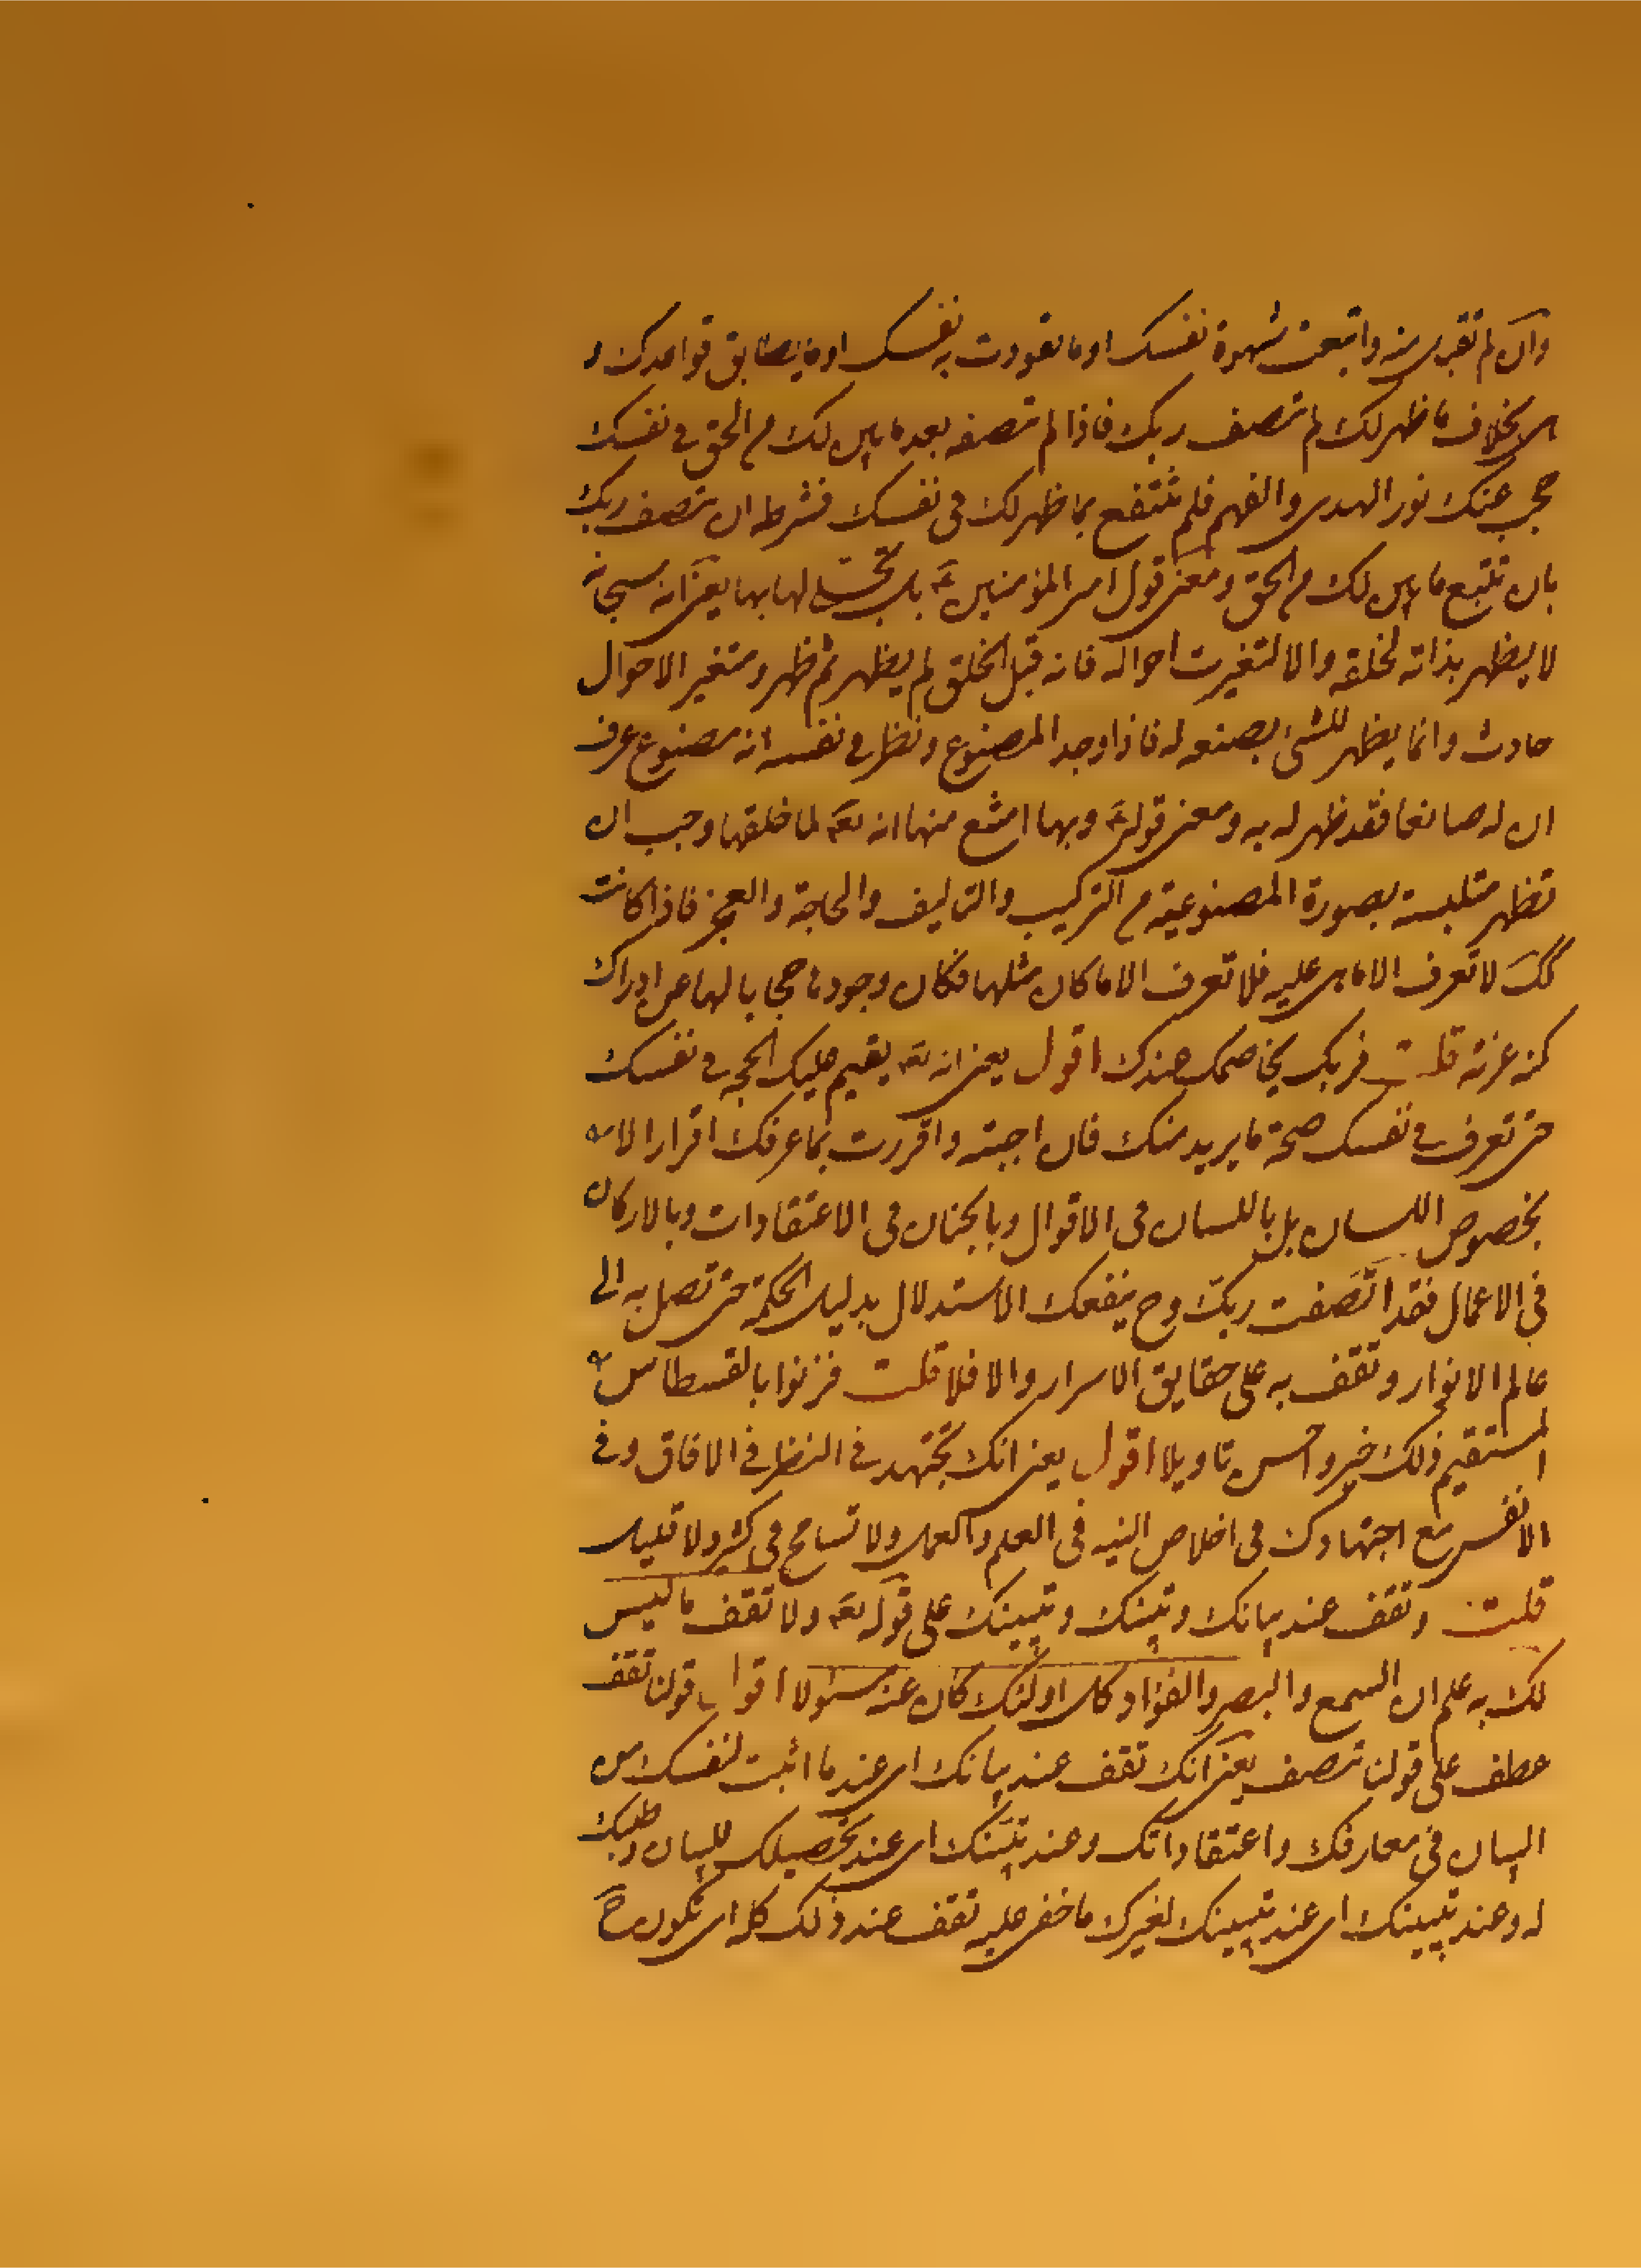 وان لم تقبل منه واتبعت شهوة نفسك او ما تعودت به نفسك او ما يطابق قواعدك و
هى بخلاف ما ظهر لك لم تنصف ربك فاذا لم تنصفه بعد ما بين لك م الحق فى نفسك
حجب عنك نور الهدى والفهم فلم تنتفع بما ظهر لك فى نفسك فشرطه ان تنصف ربك
بان تتبع ما بين لك م الحق ومعنى قول امير المؤمنين ع بل تجلى لها بها يعنى انه سبحانه
لا يظهر بذاته لخلقه والا لتغيرت احواله فانه قبل الخلق لم يظهر ثم ظهر ومتغير الاحوال
حادث وانما يظهر للشئ بصنعه له فاذا وجد المصنوع ونظر فى نفسه انه مصنوع عرف
ان له صانعا فقد ظهر له به ومعنى قوله ع وبها امتنع منها انه تعا لما خلقها وجب ان
تظهر متلبسة بصورة المصنوعية م التركيب والتاليف والحاجة والعجز فاذا كانت
كك لا تعرف الا ما هى عليه فلا تعرف الا ما كان مثلها فكان وجودها حجابا لها عن ادراك
كنه عزته قلت فربك يخاصمك عندك اقول يعنى انه تعا يقيم عليك الحجه فى نفسك
حتى تعرف فى نفسك صحة ما يريد منك فان اجبته واقررت بما عرفك اقرارا لا
بخصوص اللسان بل باللسان فى الاقوال وبالجنان فى الاعتقادات وبالاركان
فى الاعمال فقد انصفت ربك وح ينفعك الاستدلال بدليل الحكمة حتى تصل به الى
عالم الانوار وتقف به على حقايق الاسرار والا فلا قلت فزنوا بالقسطاس
المستقيم ذلك خير واحسن تاويلا اقول يعنى انك تجتهد فى النظر فى الافاق وفى
الانفس مع اجتهادك فى اخلاص النيه فى العلم والعمل ولا تسامح فى كثير ولا قليل
قلت وتقف عند بيانك وتبينك وتبيينك على قوله تعا ولا تقف ما ليس
لك به علم ان السمع والبصر والفؤاد كل اولئك كان عنه مسئولا اقول قولنا تقف
عطف على قولنا تنصف يعنى انك تقف عند بيانك اى عند ما اثبت لنفسك من
البيان فى معارفك واعتقاداتك وعند تبينك اى عند تحصيلك للبيان وطلبك
له وعند تبيينك اى عند تبيينك لغيرك ما خفى عليه تقف عند ذلك كله اى تكون ح